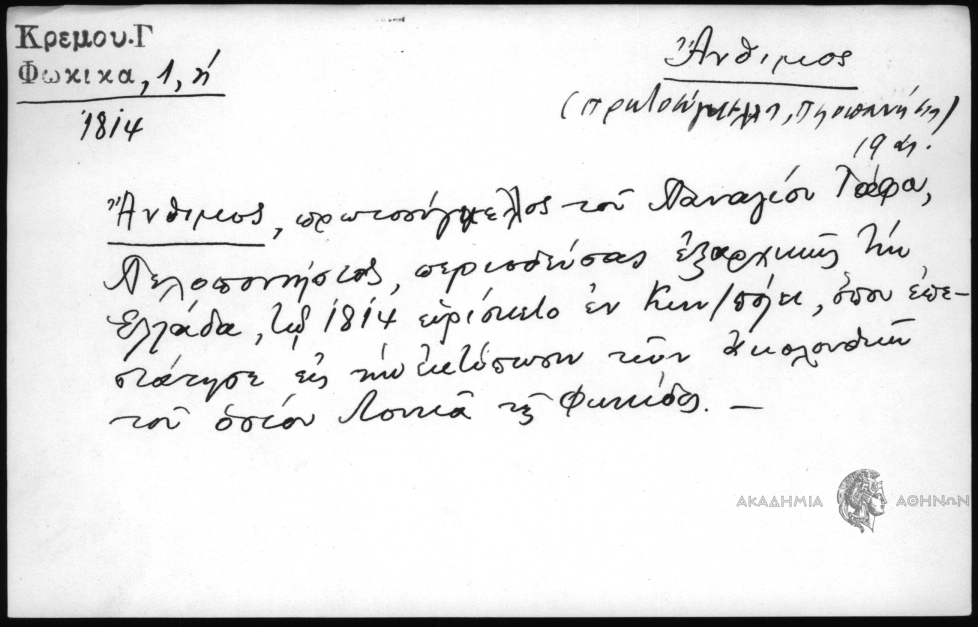 Κρεμου.Γ
Φωκικα, 1, ή
1814
Ἄνθιμος
(πρωτοσύγκελλος, Πελοποννήσιος)
19 αἰ.
Ἄνθιμος, πρωτοσύγκελλος τοῦ Παναγίου Τάφου,
Πελοποννήσιος, περιοδεύσας ἐξαρχικῶς τὴν
Ἑλλάδα, τῷ 1814 εὑρίσκετο ἐν Κων/πόλει, ὅπου ἐπε-
στάτησε εἰς τὴν ἐκτύπωσιν τῶν Ἀκολουθιῶν
τοῦ ὁσίου Λουκᾶ τῆς Φωκίδος. —
ΑΚΑΔΗΜΙΑ ΑΘΗΝΩΝ